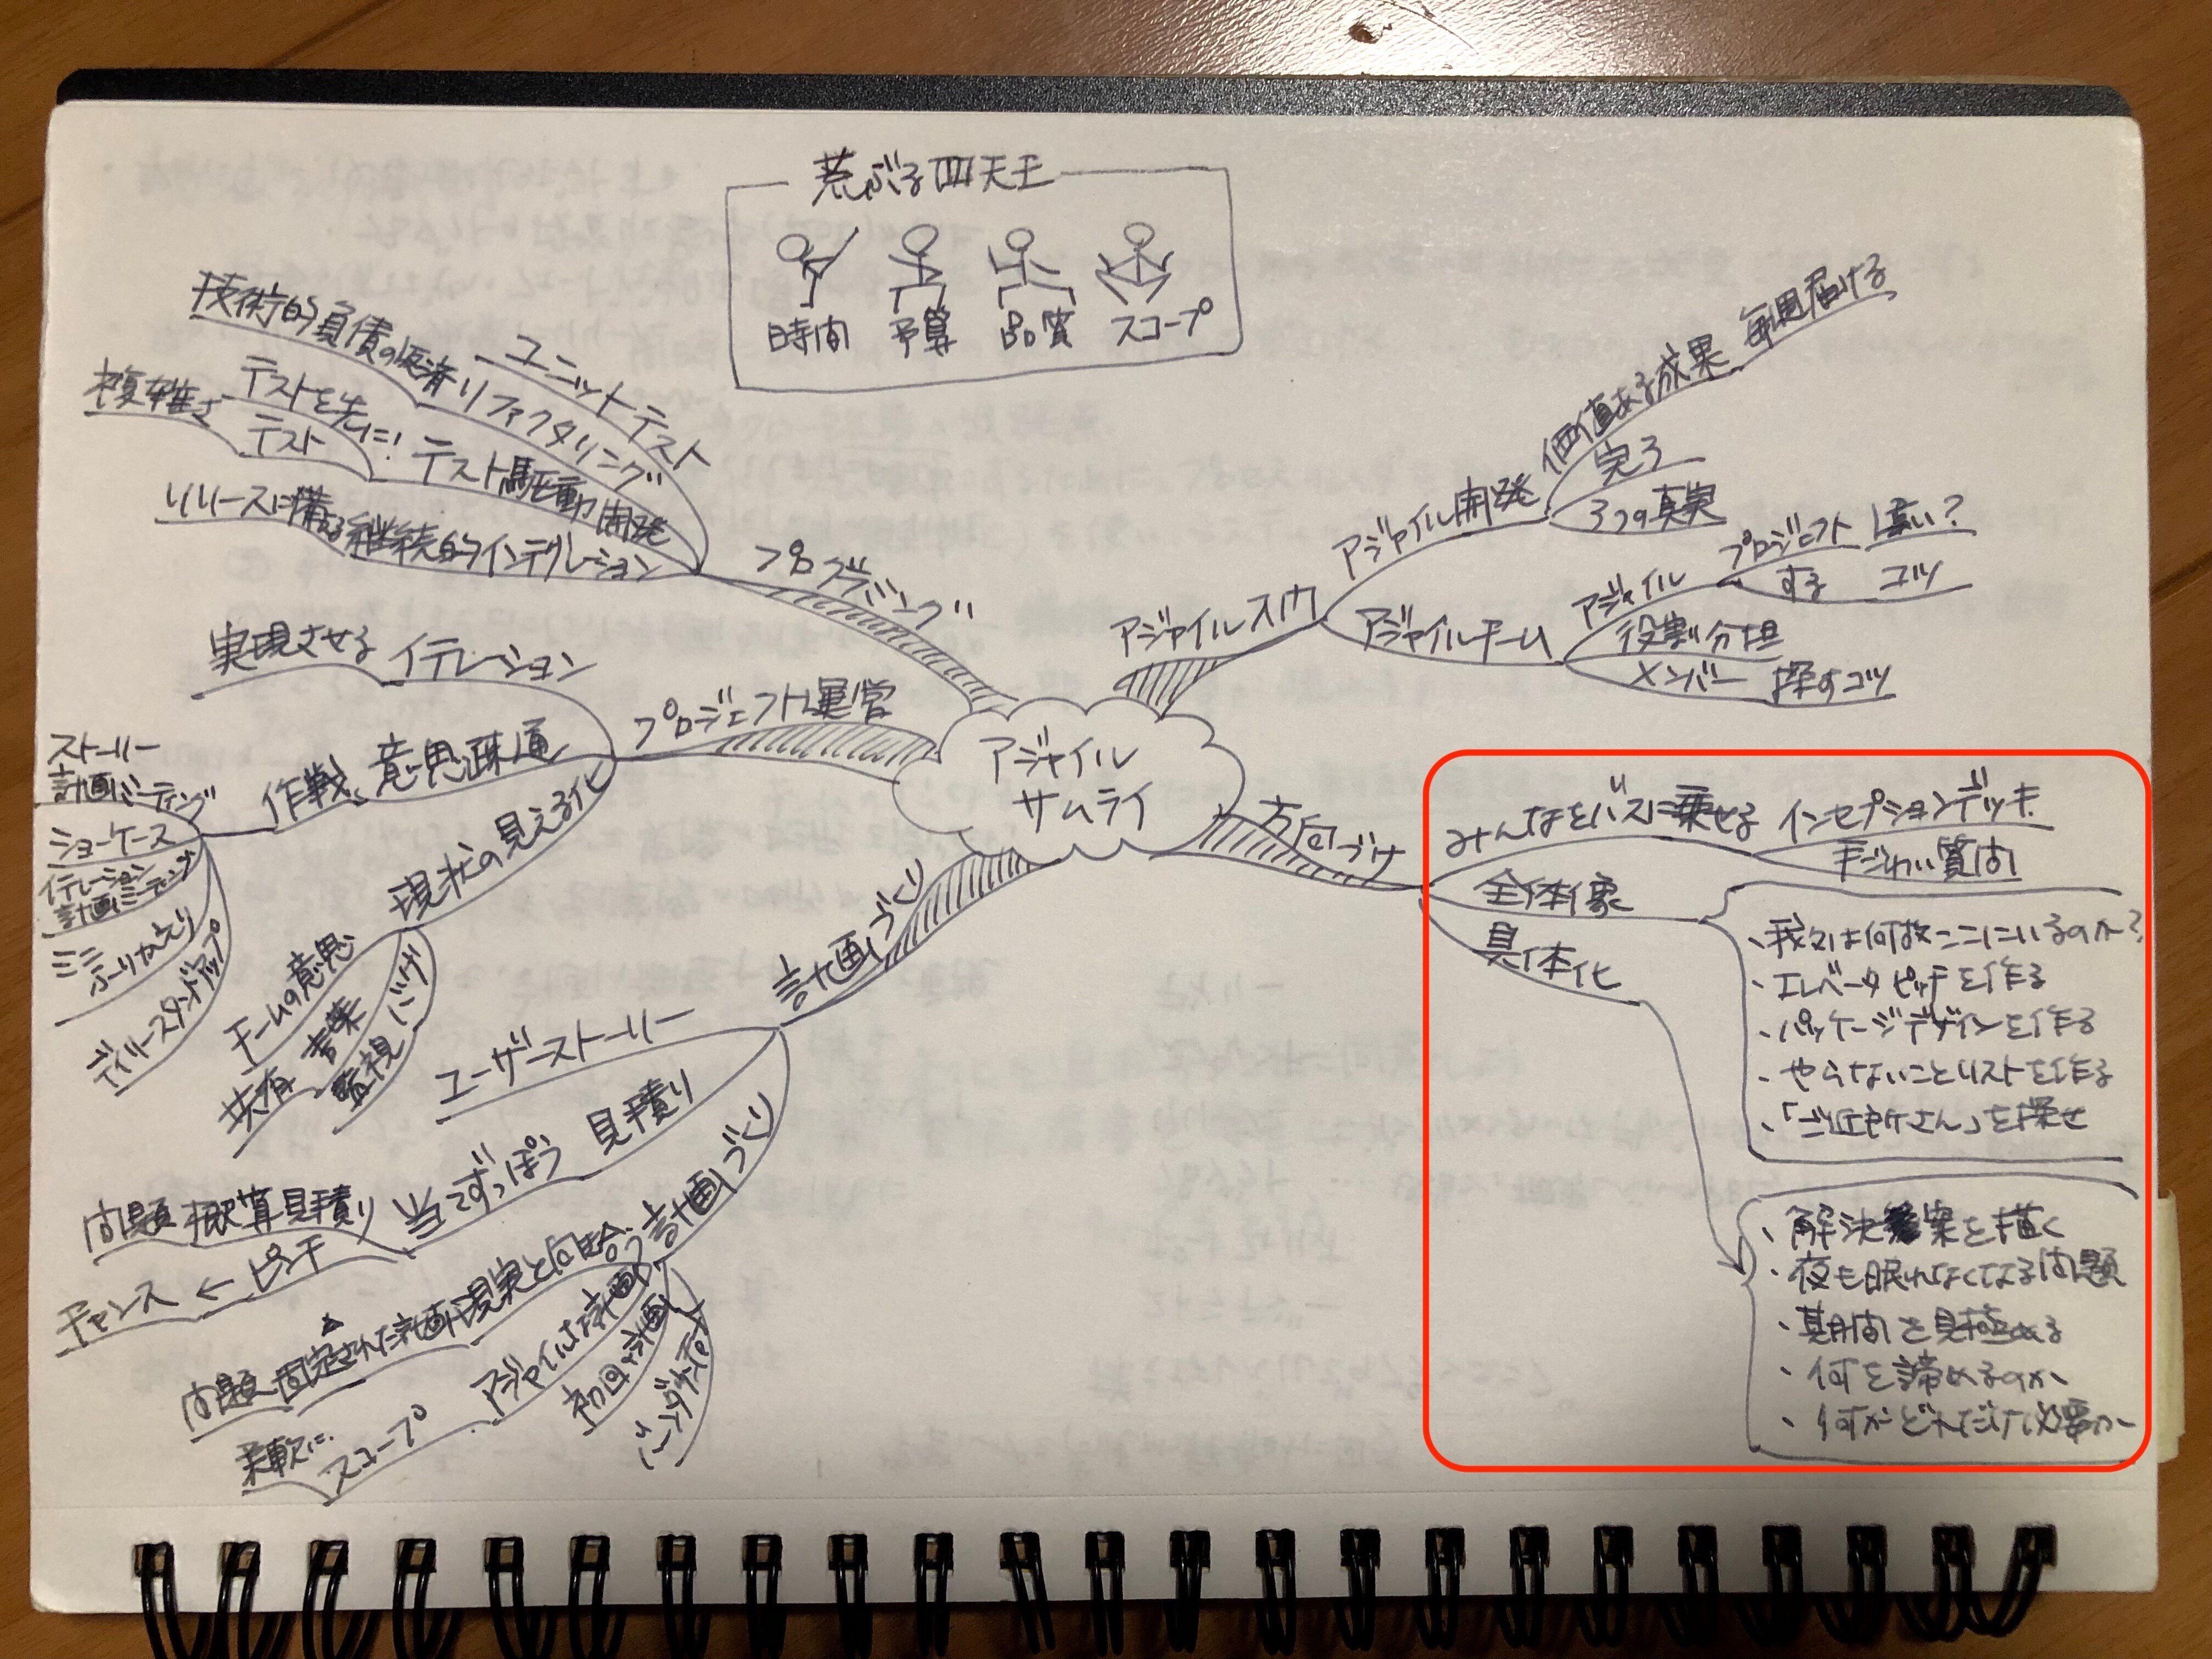 荒ぶる四天王
時間 予算 品質 スコープ
アジャイル
サムライ
アジャイル入門
アジャイル開発
価値ある成果 毎週届ける
完了
3つの真実
アジャイルチーム
アジャイル
プロジェクト 違い?
する コツ
役割分担
メンバー 探すコツ
方向づけ
みんなをバスに乗せる インセプションデッキ
手ごわい質問
全体像
・我々は何故ここにいるのか?
・エレベータピッチを作る
・パッケージデザインを作る
・やらないことリストを作る
・「ご近所さん」を探せ
具体化
・解決案を描く
・夜も眠れなくなる問題
・期間を見極める
・何を諦めるのか
・何がどれだけ必要か
計画づくり
ユーザーストーリー
見積り
当てずっぽう
問題 概算見積り
チャンス ← ピンチ
計画づくり
現実と向き合う
問題 固定された計画
アジャイルな計画
スコープ
柔軟に
初回の計画
プロジェクト運営
イテレーション
実現させる
意思疎通
作戦
ストーリー
計画ミーティング
ショーケース
イテレーション
計画ミーティング
ミニ
ふりかえり
デイリースタンドアップ
現状の見える化
チームの意思
共有 言葉
監視 バグ
プログラミング
ユニットテスト
リファクタリング
技術的負債の返済
テスト駆動開発
テストを先に!
複雑さ テスト
継続的インテグレーション
リリースに備える